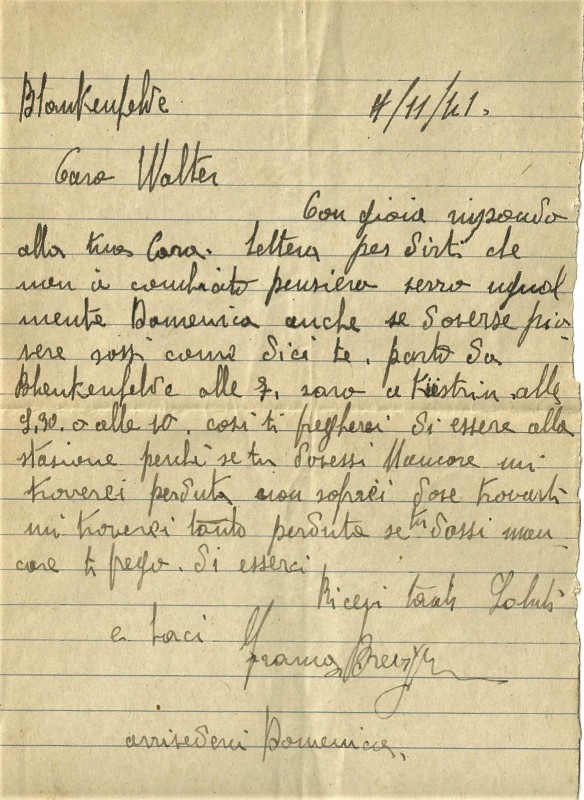 Blankenfelde 4/11/41.
Caro Walter
Con gioia rispondo
alla tua Cara. lettera per dirti che
non à cambiato pensiero verro ugual
mente Domenica anche se dovesse pio
vere sassi come dici te. parto da
Blenkenfelde alle 7. saro a Küstrin alle
9,30. o alle 10. cosi ti pregherei di essere alla
stasione perchè se tu dovessi Mancare mi
troverei perduta non saprei dove trovarti
mi troverei tanto perduta se tu dovssi man-
care ti prego. di esserci
Ricevi tanti Saluti
e baci
arrivederci Domenica.